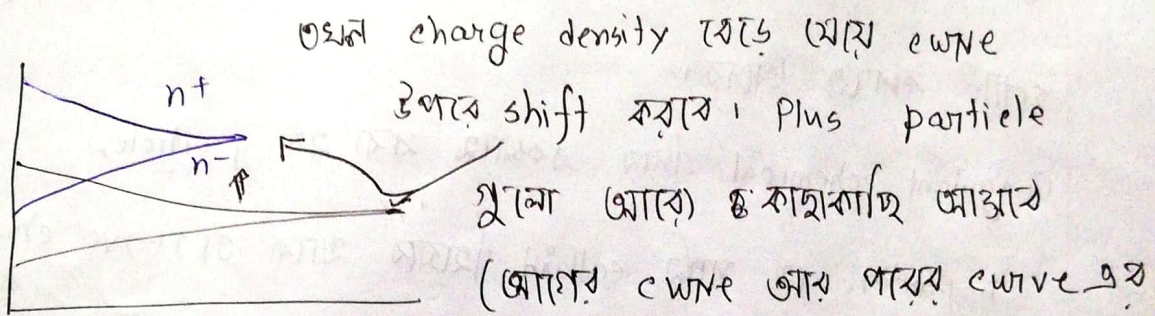 তখন charge density বেড়ে যেয়ে curve
n+
উপরে shift করবে। Plus particle
n-
গুলো আরো কাছাকাছি আসবে
(আগের curve আর পরের curve এর